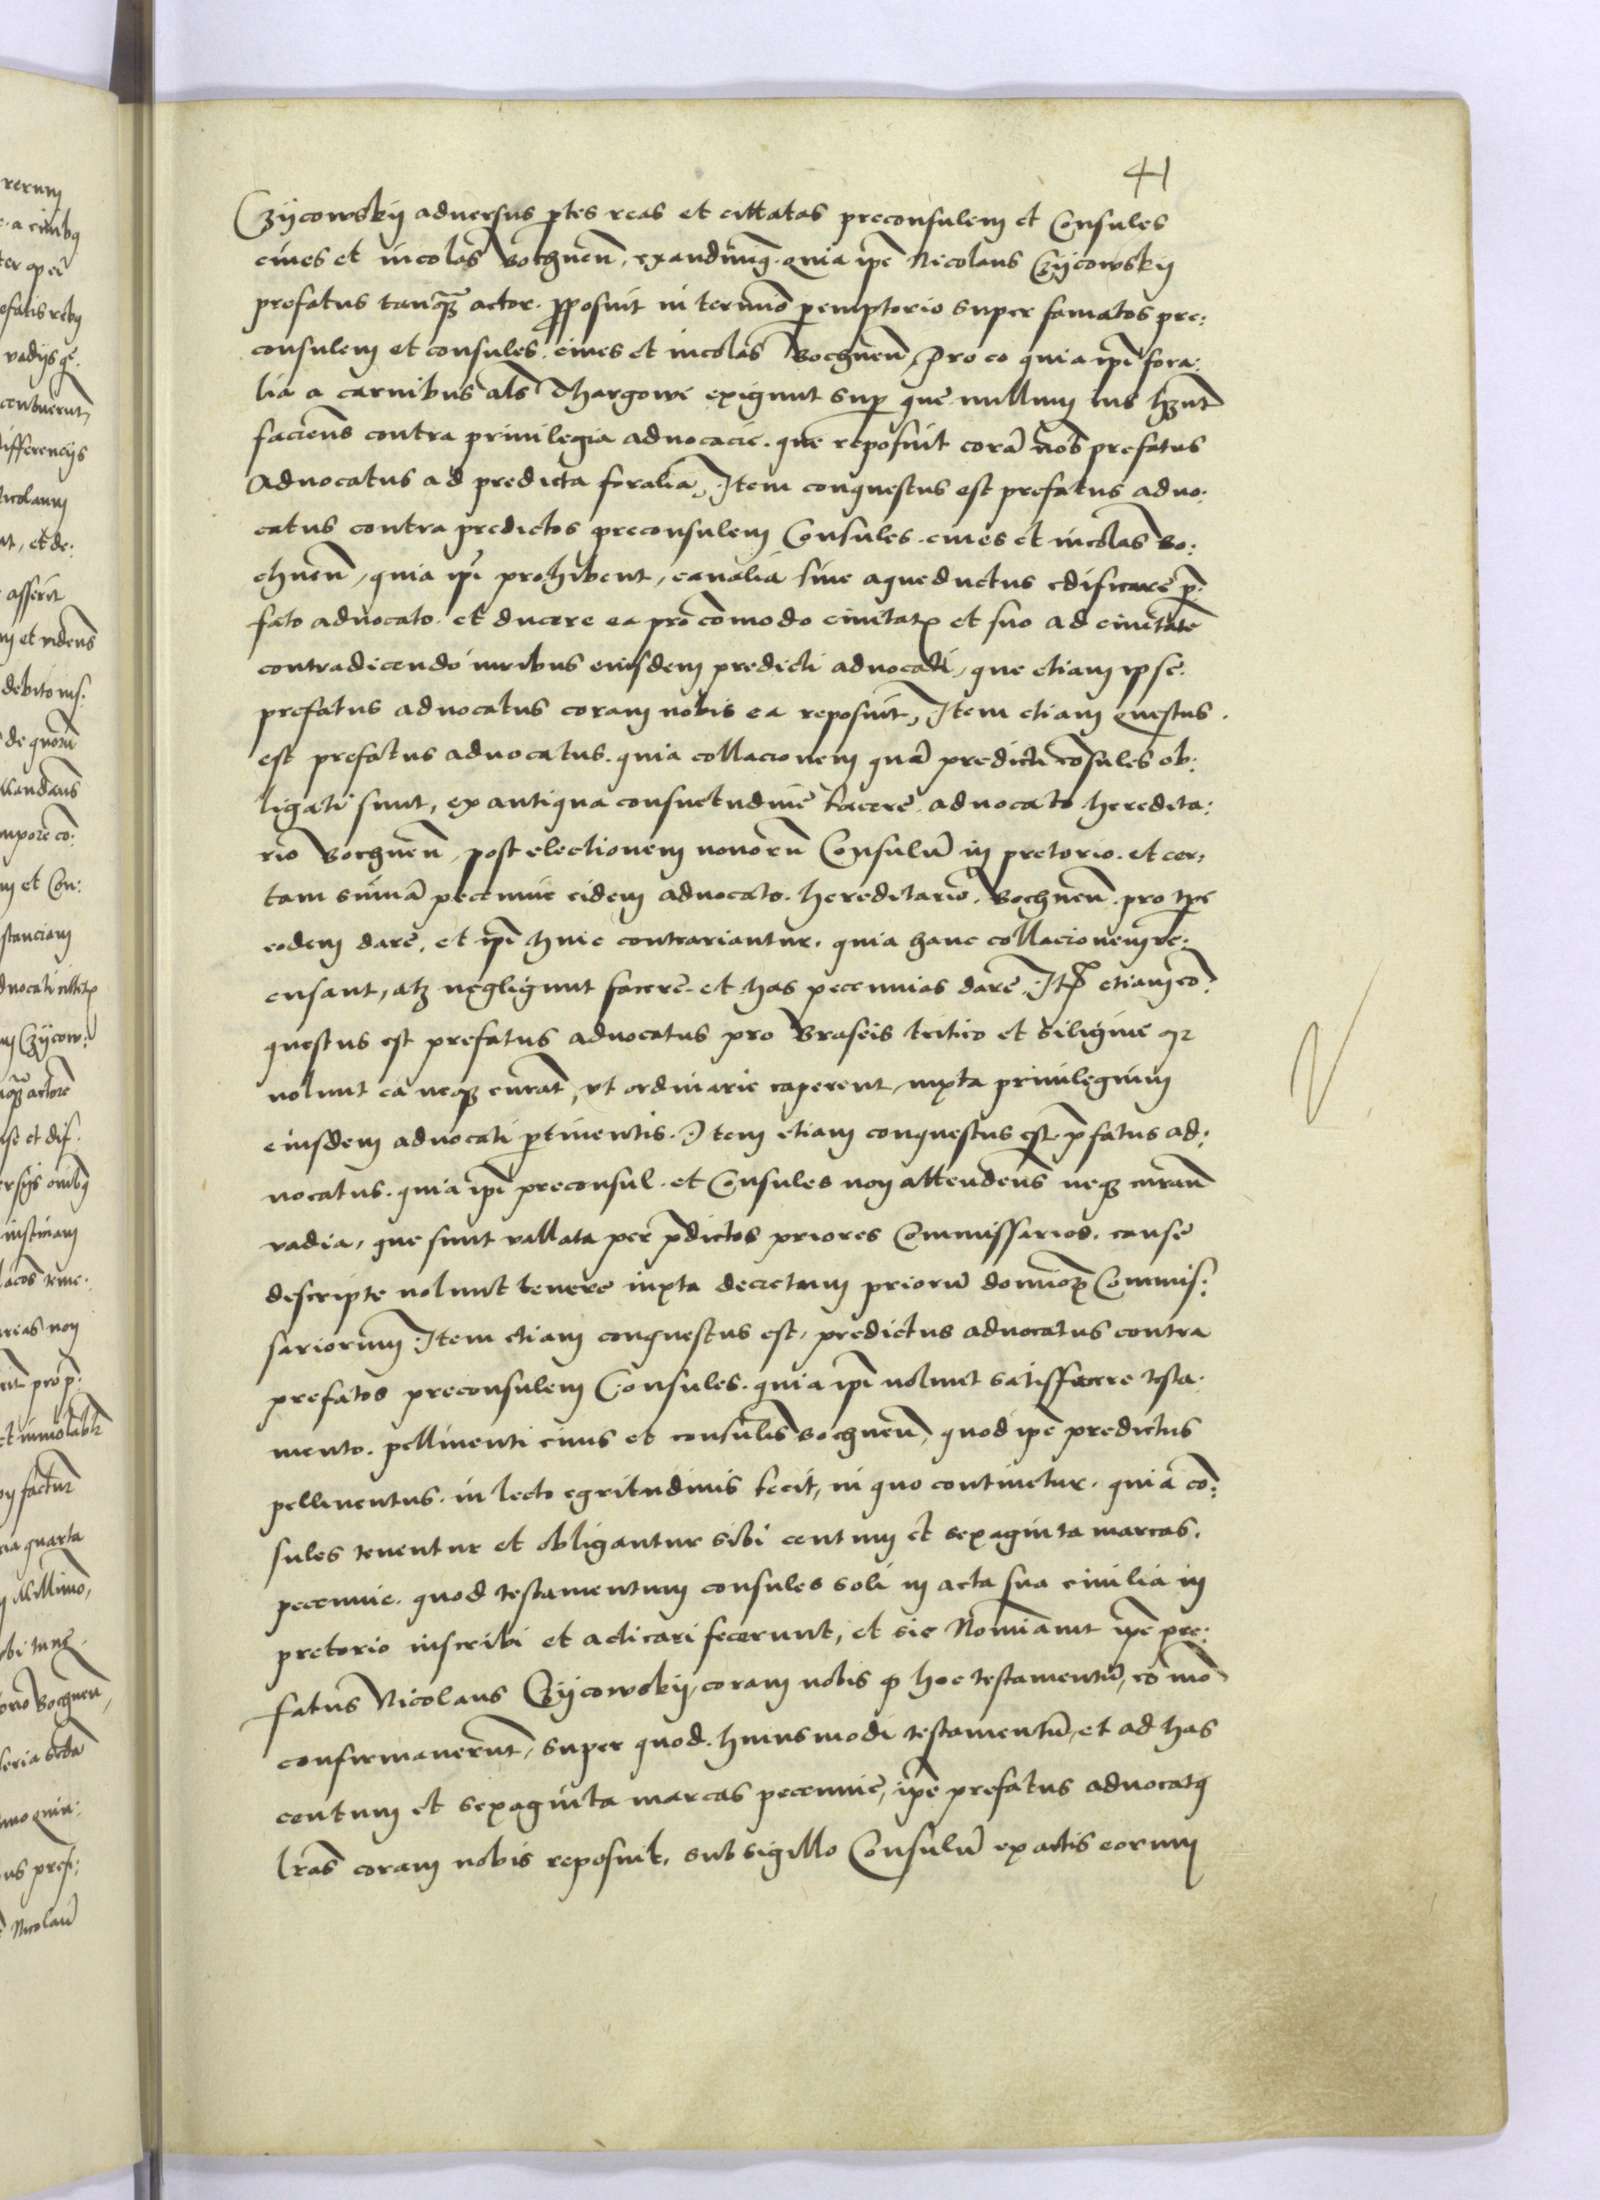 41
Czÿcowskÿ adversus ptes reas et cittatas preconsulem et Consules
cives et incolas Bochnen̄, exaudimꝰ. quia ipē Nicolaus Czÿcowskÿ
prefatus tanꝙȝ actor. pposuit in termiō peremptorio super famatos pre:
consulem et consules. cives et incolas Bochnen̄, Pro eo quia ipī fora:
lia a carnibus als̄ Thargowe exigunt sup que nullum ius hn̄t
faciens contra privilegia advocacie. que reposuit corā nob̄ prefatus
Advocatus ad predicta foralia, Item conquestus est prefatus advo:
catus contra predictos preconsulem Consules. cives et incolas Bo:
chnen̄, quia ipī prohibent, canalia sive aqueductus edificare p̄:
fato advocato. et ducere ea pro cōmodo civitatꝭ et suo ad civitatē
contradicendo iuribus eiusdem predicti advocati, que etiam ipse
prefatus advocatus coram nobis ea reposuit, Item etiam questus
est prefatus advocatus. quia collacionem quā predicti cōsules ob:
ligati sunt, ex antiqua consuetudine facere advocato heredita:
rio Bochnen̄, post electionem novorū Consulū in pretorio. et cer:
tam sūmā peccunie eidem advocato. hereditario. Bochnen̄. pro tpe
eodem dare, et ipī huic contrariantur. quia hanc collacionem re:
cusant, atȝ negligunt facere. et has peccunias dare. Itē etiam cō:
questus est prefatus advocatus pro Braseis tritico et siligine ꝙ
nolunt ea neqȝ curāt, ut ordinarie caperent, iuxta privilegium
eiusdem advocati ptinentis. Item etiam conquestus est. p̄fatus ad:
vocatus. quia ipī preconsul. et Consules non attendens neqȝ curant
vadia, que sunt vallata per p̄dictos priores Commissarios. cause
descripte nolunt tenere iuxta decretum priorū dominoꝝ Commis:
sariorum. Item etiam conquestus est, predictus advocatus contra
prefatos preconsulem Consules. quia ipī nolunt satisffacere testa:
mento. pellinenti civis et consulis Bochnen̄, quod ipē predictus
pellinentus. in lecto egritudinis fecit, in quo continetur. quia cō:
sules tenentur et obligantur sibi centum et sexaginta marcas.
peccunie. quod testamentum consules soli in acta sua civilia in
pretorio inscribi et acticari fecerunt, et sic Nominavit ipē pre:
fatus Nicolaus Czÿcowskÿ, coram nobis ꝙ hoc testamentū, eō mō
confirmaverunt, super quod. huiusmodi testamentū, et ad has
centum et sexaginta marcas peccunie, ipē prefatus advocatꝰ
lr̄as coram nobis reposuit, sub sigillo Consulū ex actis eorum